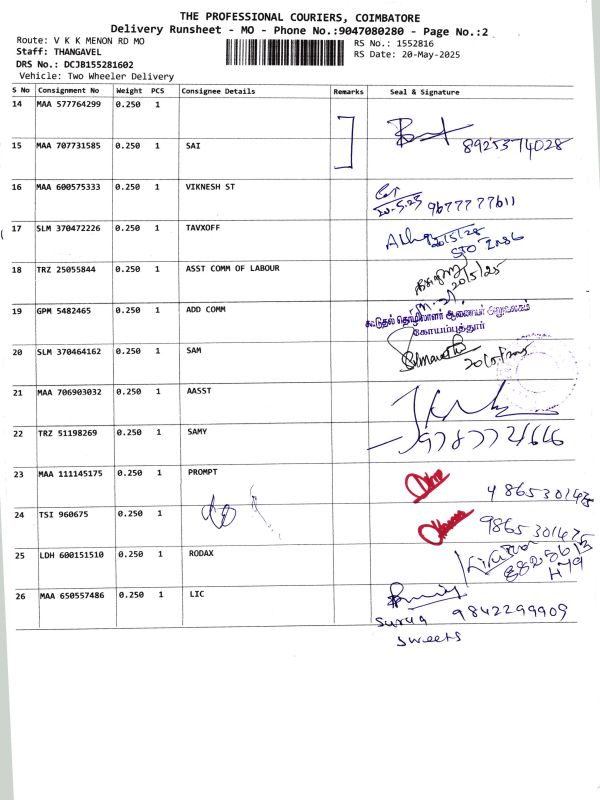 THE PROFESSIONAL COURIERS, COIMBATORE
Delivery Runsheet - MO - Phone No.:9047080280 - Page No.:2
Route: V K K MENON RD MO
RS No.: 1552816
Staff: THANGAVEL
RS Date: 20-May-2025
DRS No.: DCJB155281602
Vehicle: Two Wheeler Delivery
S No Consignment No Weight PCS Consignee Details Remarks Seal & Signature
14 MAA 577764299 0.250 1
15 MAA 707731585 0.250 1 SAI 8925374028
16 MAA 600575333 0.250 1 VIKNESH ST
20.5.25 9677777611
17 SLM 370472226 0.250 1 TAVXOFF
20/5/25
18 TRZ 25055844 0.250 1 ASST COMM OF LABOUR
20/5/25
19 GPM 5482465 0.250 1 ADD COMM
கூடுதல் தொழிலாளர் ஆணையர் அலுவலகம்
கோயம்புத்தூர்
20 SLM 370464162 0.250 1 SAM
21 MAA 706903032 0.250 1 AASST
22 TRZ 51198269 0.250 1 SAMY
23 MAA 111145175 0.250 1 PROMPT
24 TSI 960675 0.250 1
25 LDH 600151510 0.250 1 RODAX
26 MAA 650557486 0.250 1 LIC
9842299909
sweets